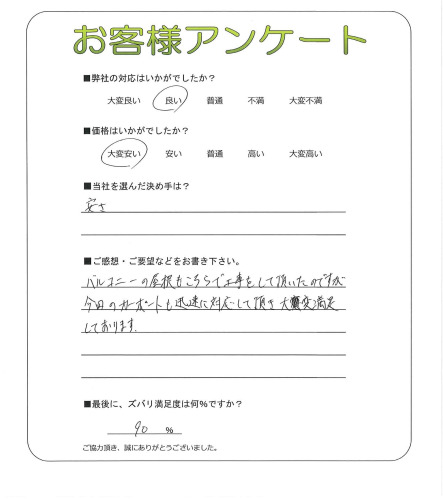 お客様アンケート
■弊社の対応はいかがでしたか？
大変良い 良い 普通 不満 大変不満
■価格はいかがでしたか？
大変安い 安い 普通 高い 大変高い
■当社を選んだ決め手は？
安さ
■ご感想・ご要望などをお書き下さい。
バルコニーの屋根もこちらで工事をして頂いたのですが
今回のカーポートも迅速に対応して頂き大変満足
しております。
■最後に、ズバリ満足度は何％ですか？
90 ％
ご協力頂き、誠にありがとうございました。